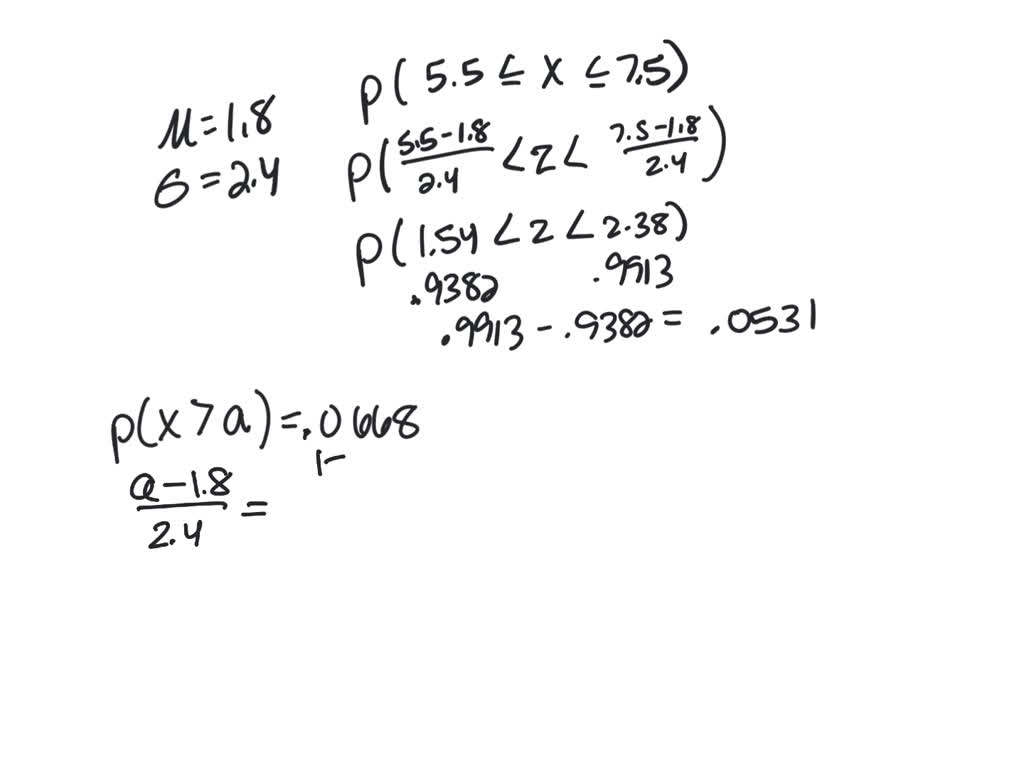 μ=1.8
σ=2.4
p( 5.5 ≤ x ≤ 7.5)
p( 5.5-1.8/2.4 < z < 7.5-1.8/2.4 )
p( 1.54 < z < 2.38)
.9382 .9913
.9913 - .9382 = .0531
p(x > a) = .0668
1-
a-1.8/2.4 =